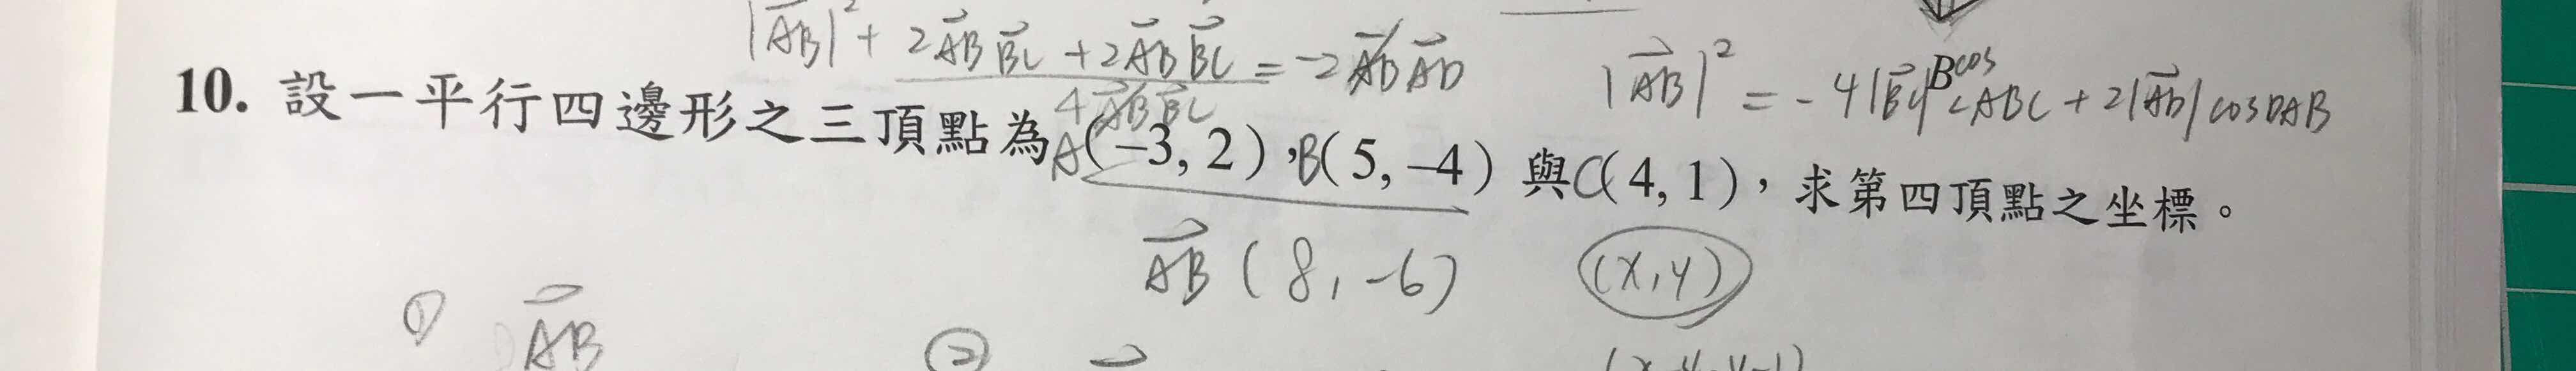 |AB|² + 2AB BC + 2AB BC = -2AB AD
4AB BC
|AB|² = -4|BC| cos∠ABC + 2|AD| cos DAB
10. 設一平行四邊形之三頂點為A(-3, 2),B(5, -4) 與C(4, 1),求第四頂點之坐標。
AB (8, -6) (x, y)
① AB ②